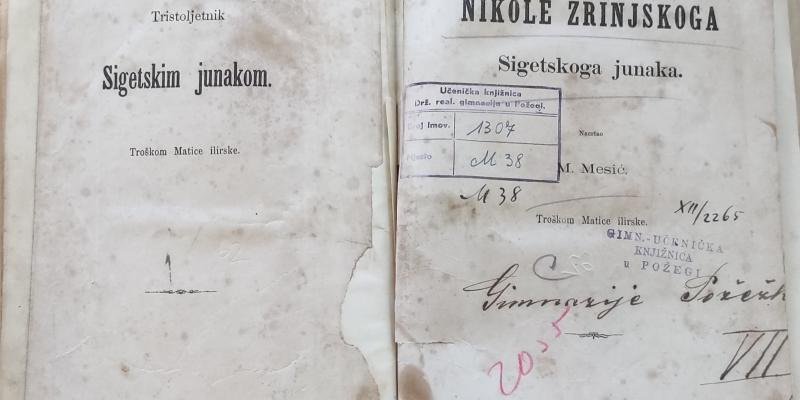 Tristoljetnik
Sigetskim junakom.
Troškom Matice ilirske.
1
NIKOLE ZRINJSKOGA
Sigetskoga junaka.
Učenička knjižnica
Drž. real. gimnazija u Požegi.
Broj imov. 1307
Mjesto M 38
Nacrtao
M. Mesić.
M 38
Troškom Matice ilirske.
XII/2265
GIMN.-UČENIČKA
KNJIŽNICA
u POŽEGI
Gimnazije Požežk
VII